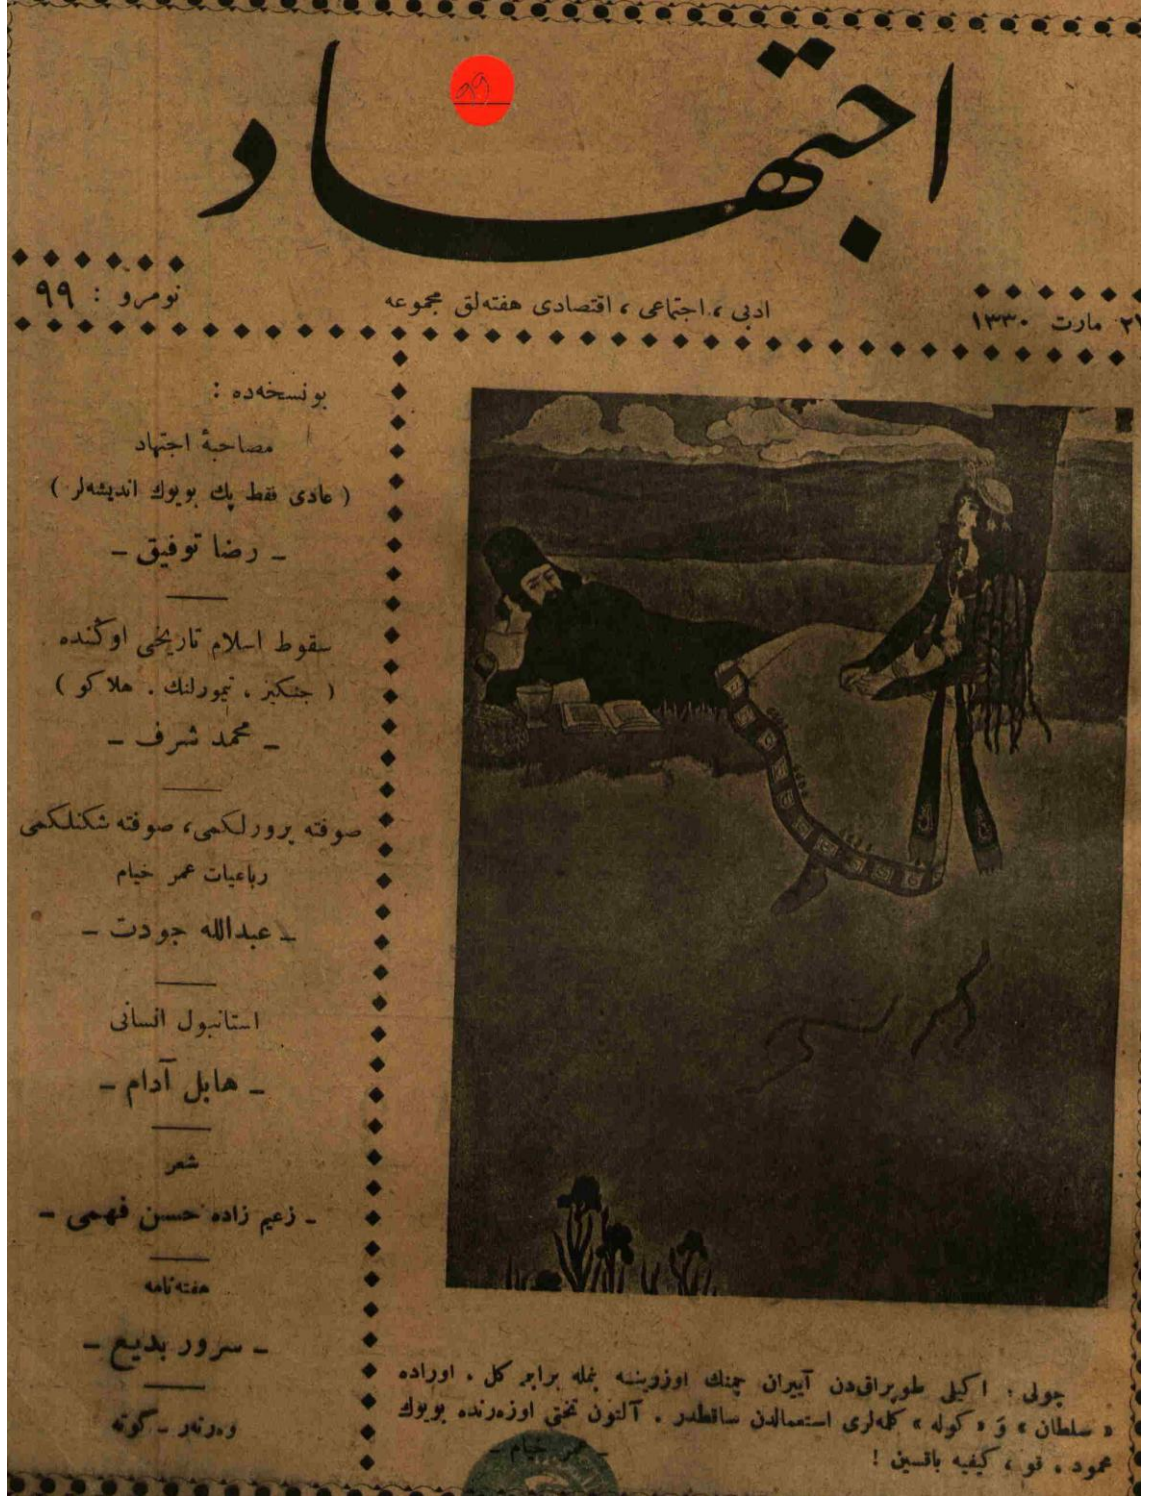 اجتهاد
نومرو : ٩٩
ادبی ، اجتماعی ، اقتصادی هفته‌لق مجموعه
مارت ١٣٣٠
بو نسخه‌ده :
مصاحبهٔ اجتهاد
( عادی فقط پك بویوك اندیشه‌لر )
ـ رضا توفیق ـ
سقوط اسلام تاریخی اوڭنده
( جنكیز ، تیمورلنك ، هلاكو )
ـ محمد شرف ـ
صوفته پرورلكمی ، صوفته شكنلكمی
رباعیات عمر خیام
ـ عبدالله جودت ـ
استانبول انسانی
ـ هابل آدام ـ
شعر
ـ زعیم زاده حسن فهمی ـ
هفته‌نامه
ـ سرور بدیع ـ
وه‌رته‌ر ـ گوته
چولی ، اكیلی طوپراق‌دن آییران چمنك اوزرینه بنمله برابر كل . اوراده
« سلطان » و « كوله » كله‌لری استعمالدن ساقطدر . آلتون تختی اوزه‌رنده بویوك
محمود . قو ، كیفیه باقسین !
ـ عمر خیام ـ